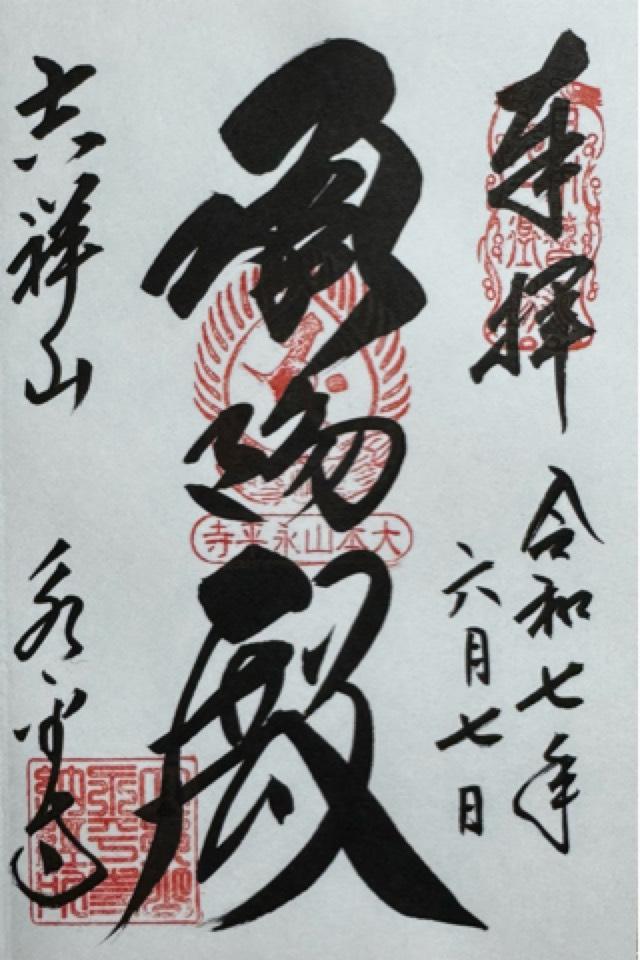 奉拝
令和七年
六月七日
承陽殿
大本山永平寺
吉祥山
永平寺